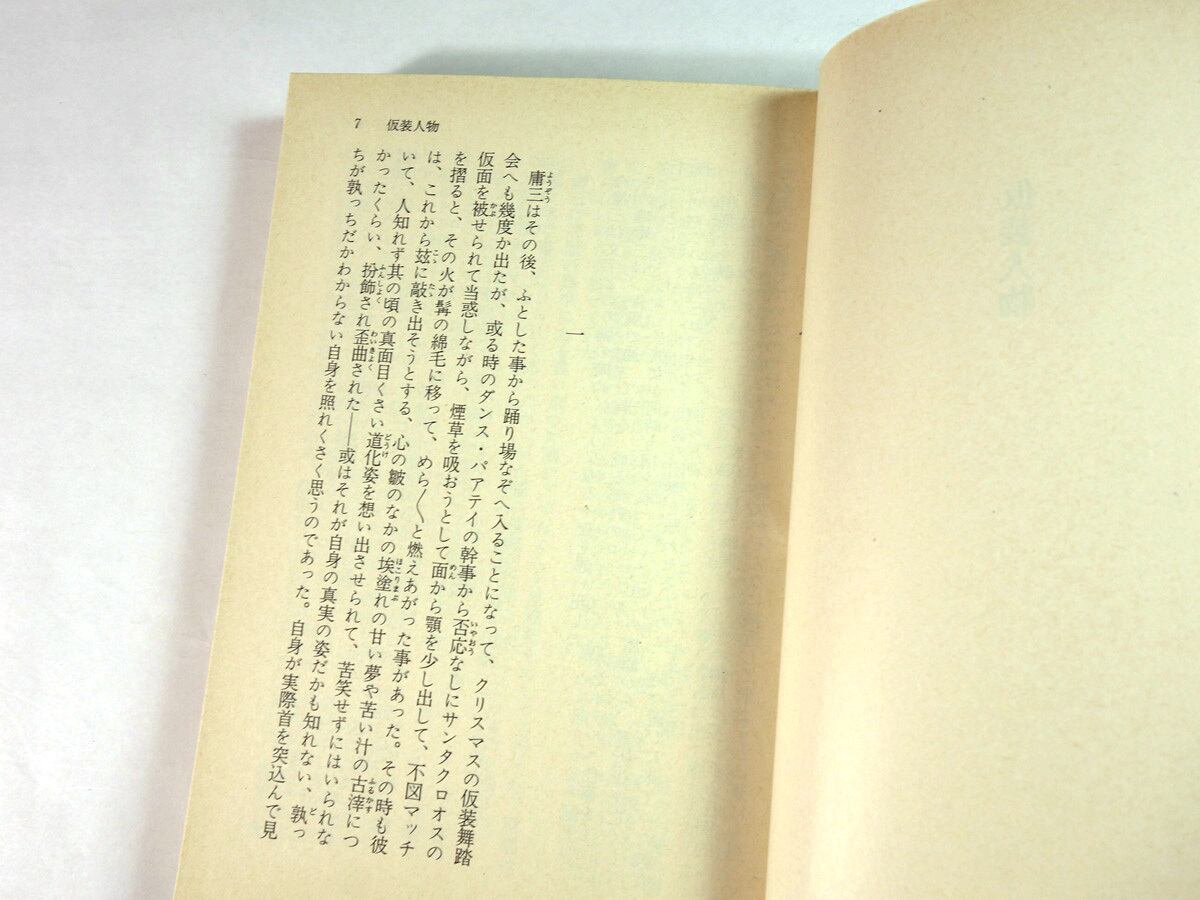 7 仮装人物
一
庸三はその後、ふとした事から踊り場なぞへ入ることになって、クリスマスの仮装舞踏
会へも幾度か出たが、或る時のダンス・パアテイの幹事から否応なしにサンタクロオスの
仮面を被せられて当惑しながら、煙草を吸おうとして面から顎を少し出して、不図マッチ
を摺ると、その火が髯の綿毛に移って、めら〳〵と燃えあがった事があった。その時も彼
は、これから玆に敲き出そうとする、心の皺のなかの埃塗れの甘い夢や苦い汁の古滓につ
いて、人知れず其の頃の真面目くさい道化姿を想い出させられて、苦笑せずにはいられな
かったくらい、扮飾され歪曲された――或はそれが自身の真実の姿だかも知れない、孰っ
ちが孰っちだかわからない自身を照れくさく思うのであった。自身が実際首を突込んで見